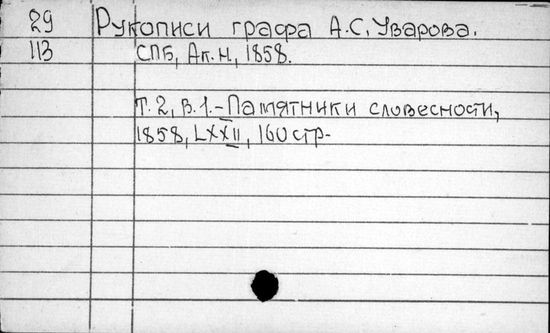 29 Рукописи графа А.С. Уварова.
113 СПБ, Ак. Н, 1858.
Т. 2, В. 1. - Памятники словесности,
1858, LXXII, 160 стр-